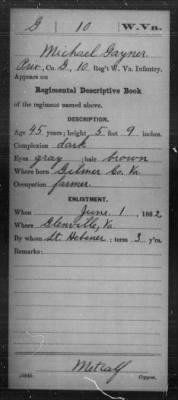 G 10 W.Va.
Michael Gayner
Priv., Co. G, 10 Reg't W. Va. Infantry.
Appears on
Regimental Descriptive Book
of the regiment named above.
DESCRIPTION.
Age 45 years; height 5 feet 9 inches.
Complexion dark
Eyes gray; hair brown
Where born Gilmer Co. Va
Occupation farmer
ENLISTMENT.
When June 1, 1862
Where Glenville, Va
By whom Lt ; term 3 y'rs.
Remarks:
Metcalf
Copyist.